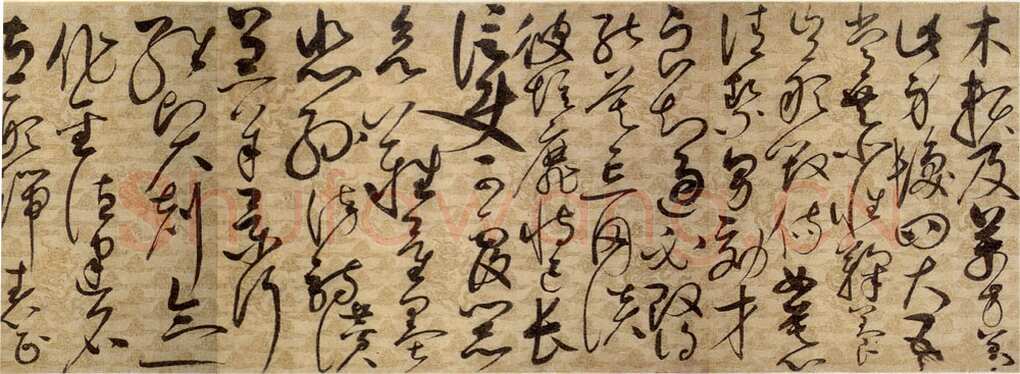 木賴及萬方蓋
此身髮四大五
常恭惟鞠養
豈敢毀傷女慕
清潔男效才
良知過必改得
能莫忘罔談
彼短靡恃己長
信使可覆器
欲難量墨
悲絲染詩讚
羔羊景行
維賢剋念
作聖德建名
立形端表正
Shufawang.CN